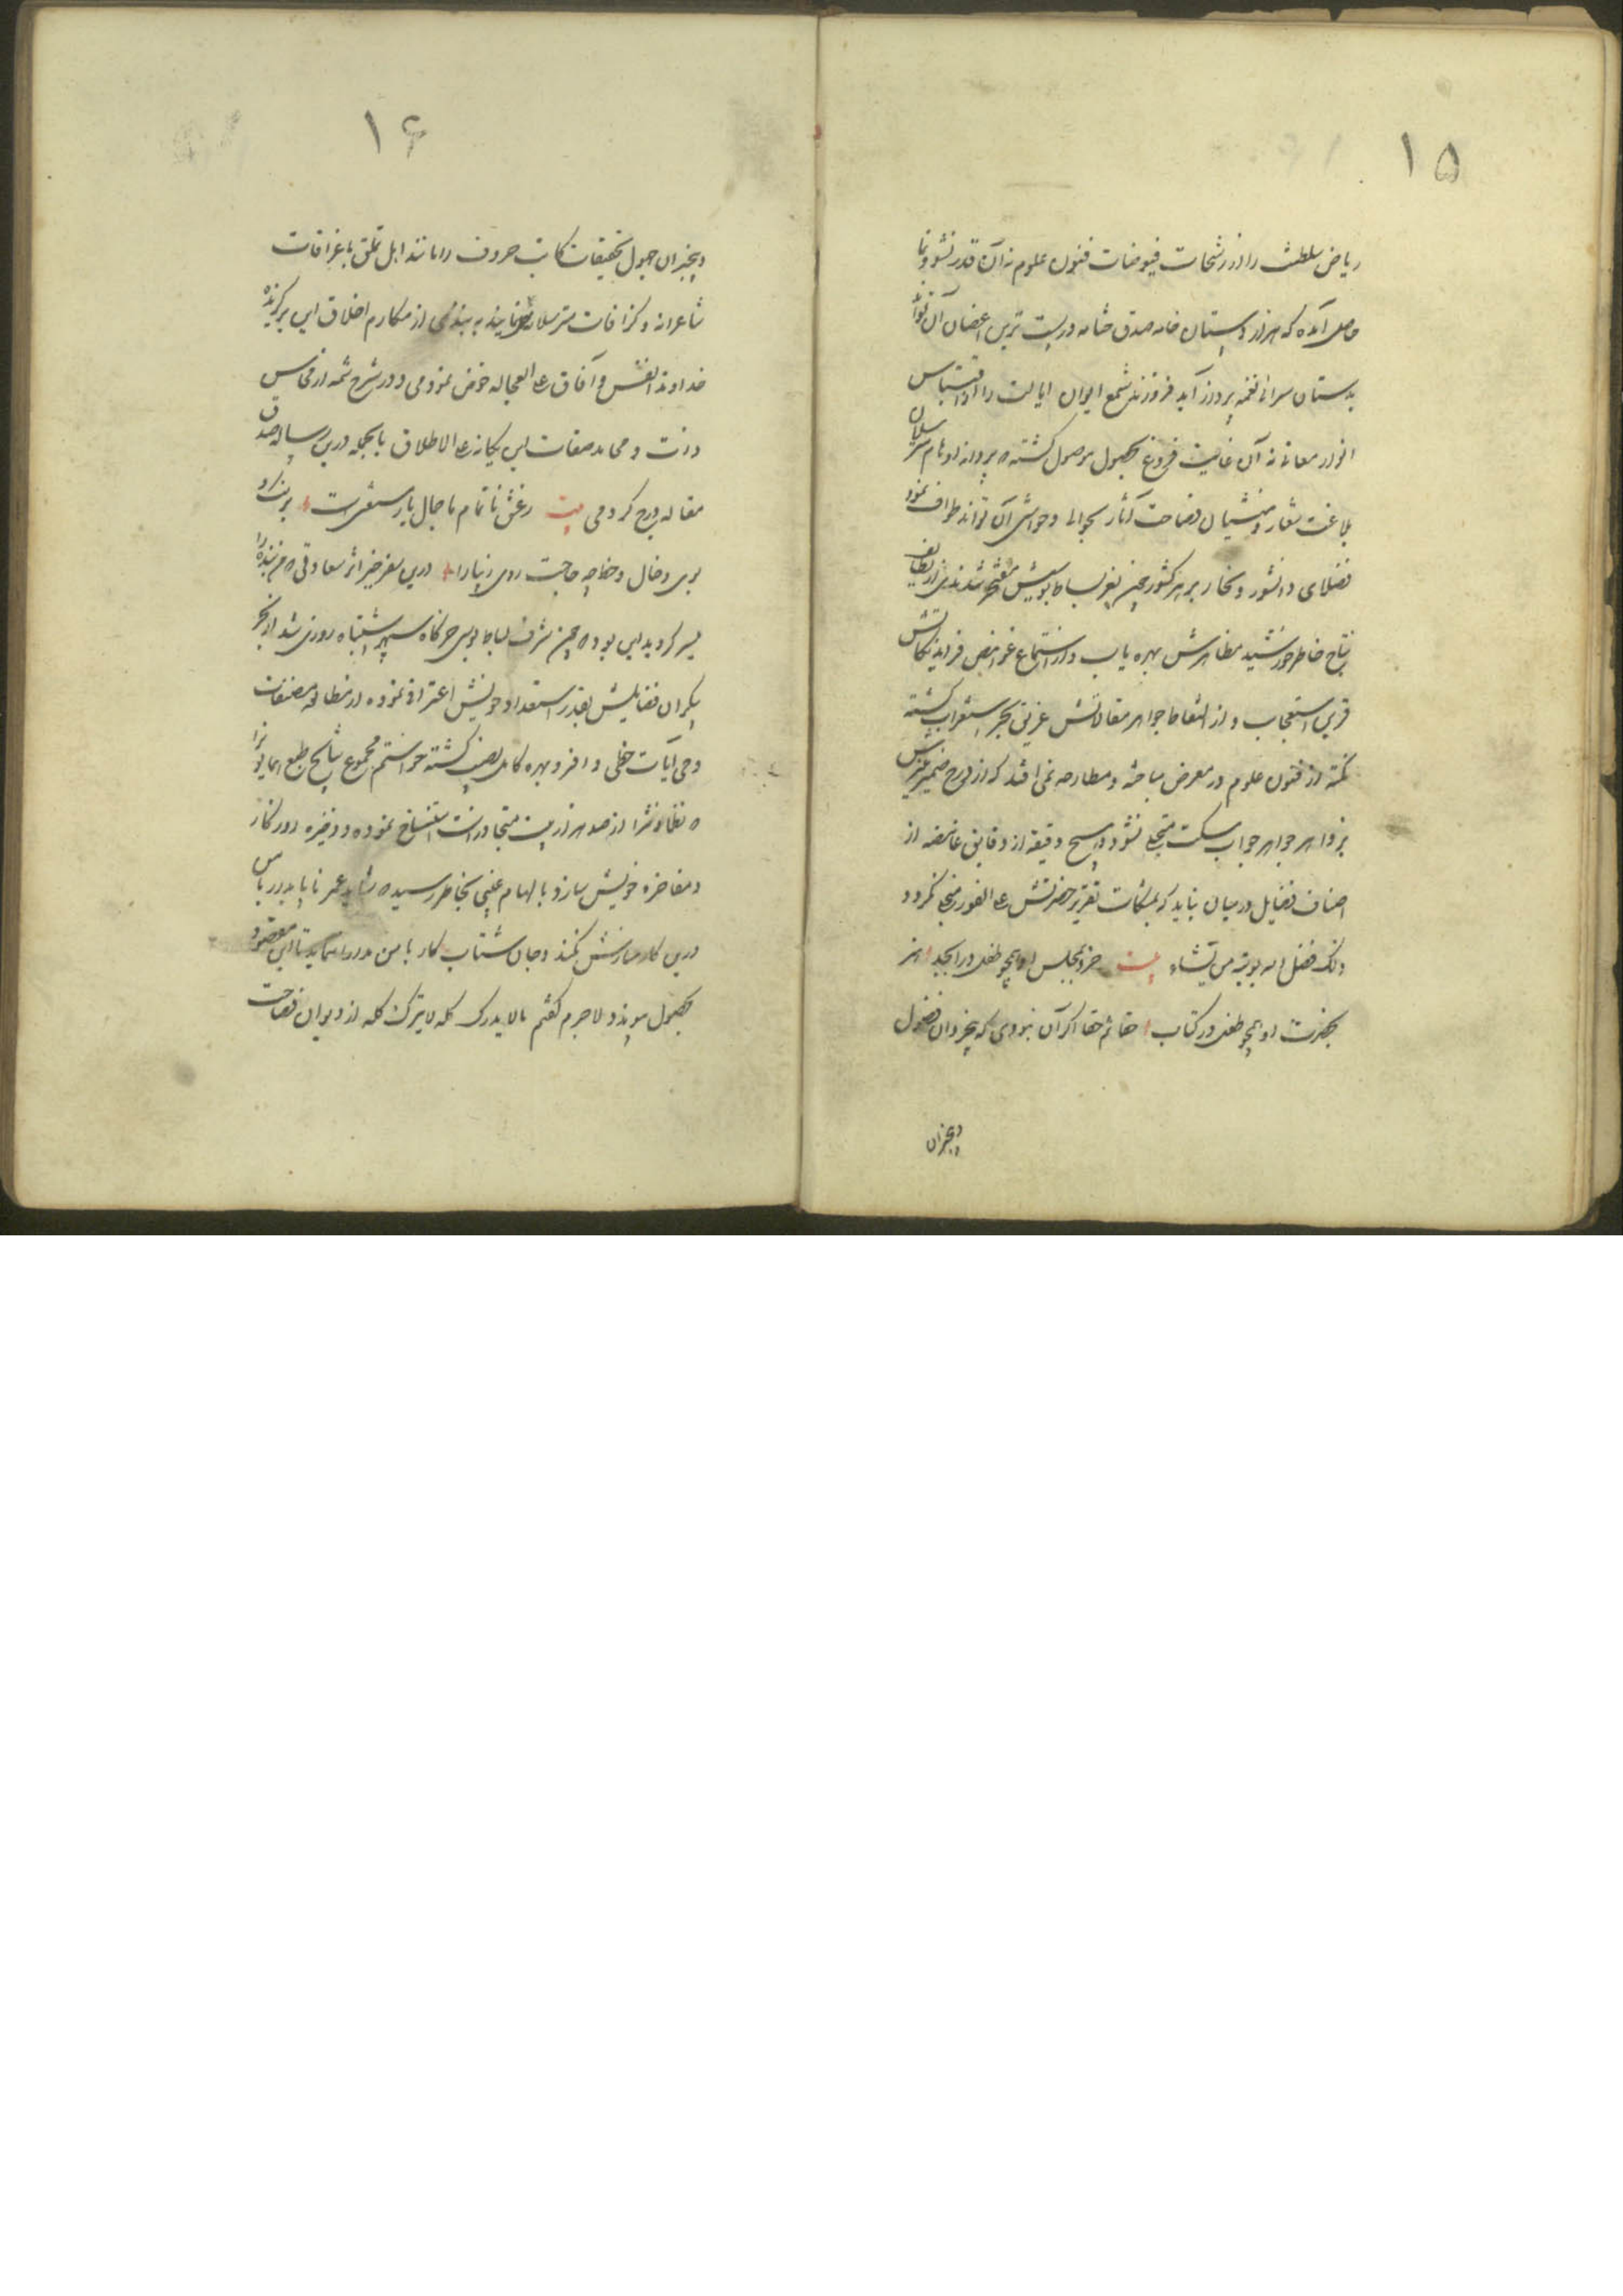 ۱۵
ریاض سلطنت را از رشحات فیوضات فنون علوم نه آن قدر نشو و نما
حاصل آمده که هزار دستان خامه صدق ختامه در پست ترین اغصان آن تواند
بدستان سرائی نغمه پرداز آید فروزندگی شمع ایوان ایالت را از اقتباس
انوار معانی نه آن غایت فروغ بحصول موصول گشته که پروانه اوهام مترسلان
بلاغت شعار و منشیان فصاحت آثار بحوالی و حواشی آن تواند طواف نمود
فضلای دانشور و نحاریر هر کشور چون بعز بساط بوسیش مفتخر شدندی از لطایف
نتایج خاطر خورشید مظاهرش بهره یاب و از استماع غوامض فراید نکاتش
قرین استعجاب و از التقاط جواهر مقالاتش غریق بحر استغراب گشته
نکته از فنون علوم در معرض مباحثه و مطارحه نمی افتد که از درج ضمیر منیرش
بزواهر جواهر جواب مسکت متجلی نشود و هیچ دقیقه از دقایق غامضه از
اصناف فضایل در میان نیاید که بمشکات تقریر حضرتش علی الفور منجلی نگردد
ذلک فضل الله یوتیه من یشاء بیت خرد بمجلس او همچو طفل در ابجد هنر
بحضرت او همچو طفل در کتاب حقا ثم حقا اگر آن نبودی که بیخردان فضول
و بیخبران
۱۶
و بیخبران جهول تحقیقات کاتب حروف را مانند اهل تملق باغراقات
شاعرانه و گزافات مترسلانه نمایند به بندی از مکارم اخلاق این برگزیده
خداوند انفس و آفاق علی العجاله خوض نمودمی و در شرح شمه از محاسن
ذات و محامد صفات این یگانه علی الاطلاق بالجمله درین رساله صدق
مقاله درج کردمی بیت ز عشق ناتمام ما جمال یار مستغنی است برنگ و
بوی و خال و خط چه حاجت روی زیبا را درین سفر خیر اثر سعادتی که مر بنده را
میسر گردید این بود که چون شرف بساط بوسی خرگاه سپهر اشتباه روزی شد از بحر
بیکران فضایلش بقدر استعداد خویش اغتراف نموده از مطالعه مصنفات
وحی آیات حظی وافر و بهره کامل نصیب گشته خواستم مجموع نتایج طبع همایون را
که نظما و نثرا از صد هزار بیت متجاوز است استنساخ نموده و ذخیره روزگار
و مفاخره خویش سازد بالهام غیبی بخاطر رسید که شاید عمر ناپایدار با من
درین کار سازش نکند و جان شتاب کار با من مدارا ننماید تا این مقصود
بحصول پیوندد لاجرم گفتم مالا یدرک کله لا یترک کله از دیوان فصاحت